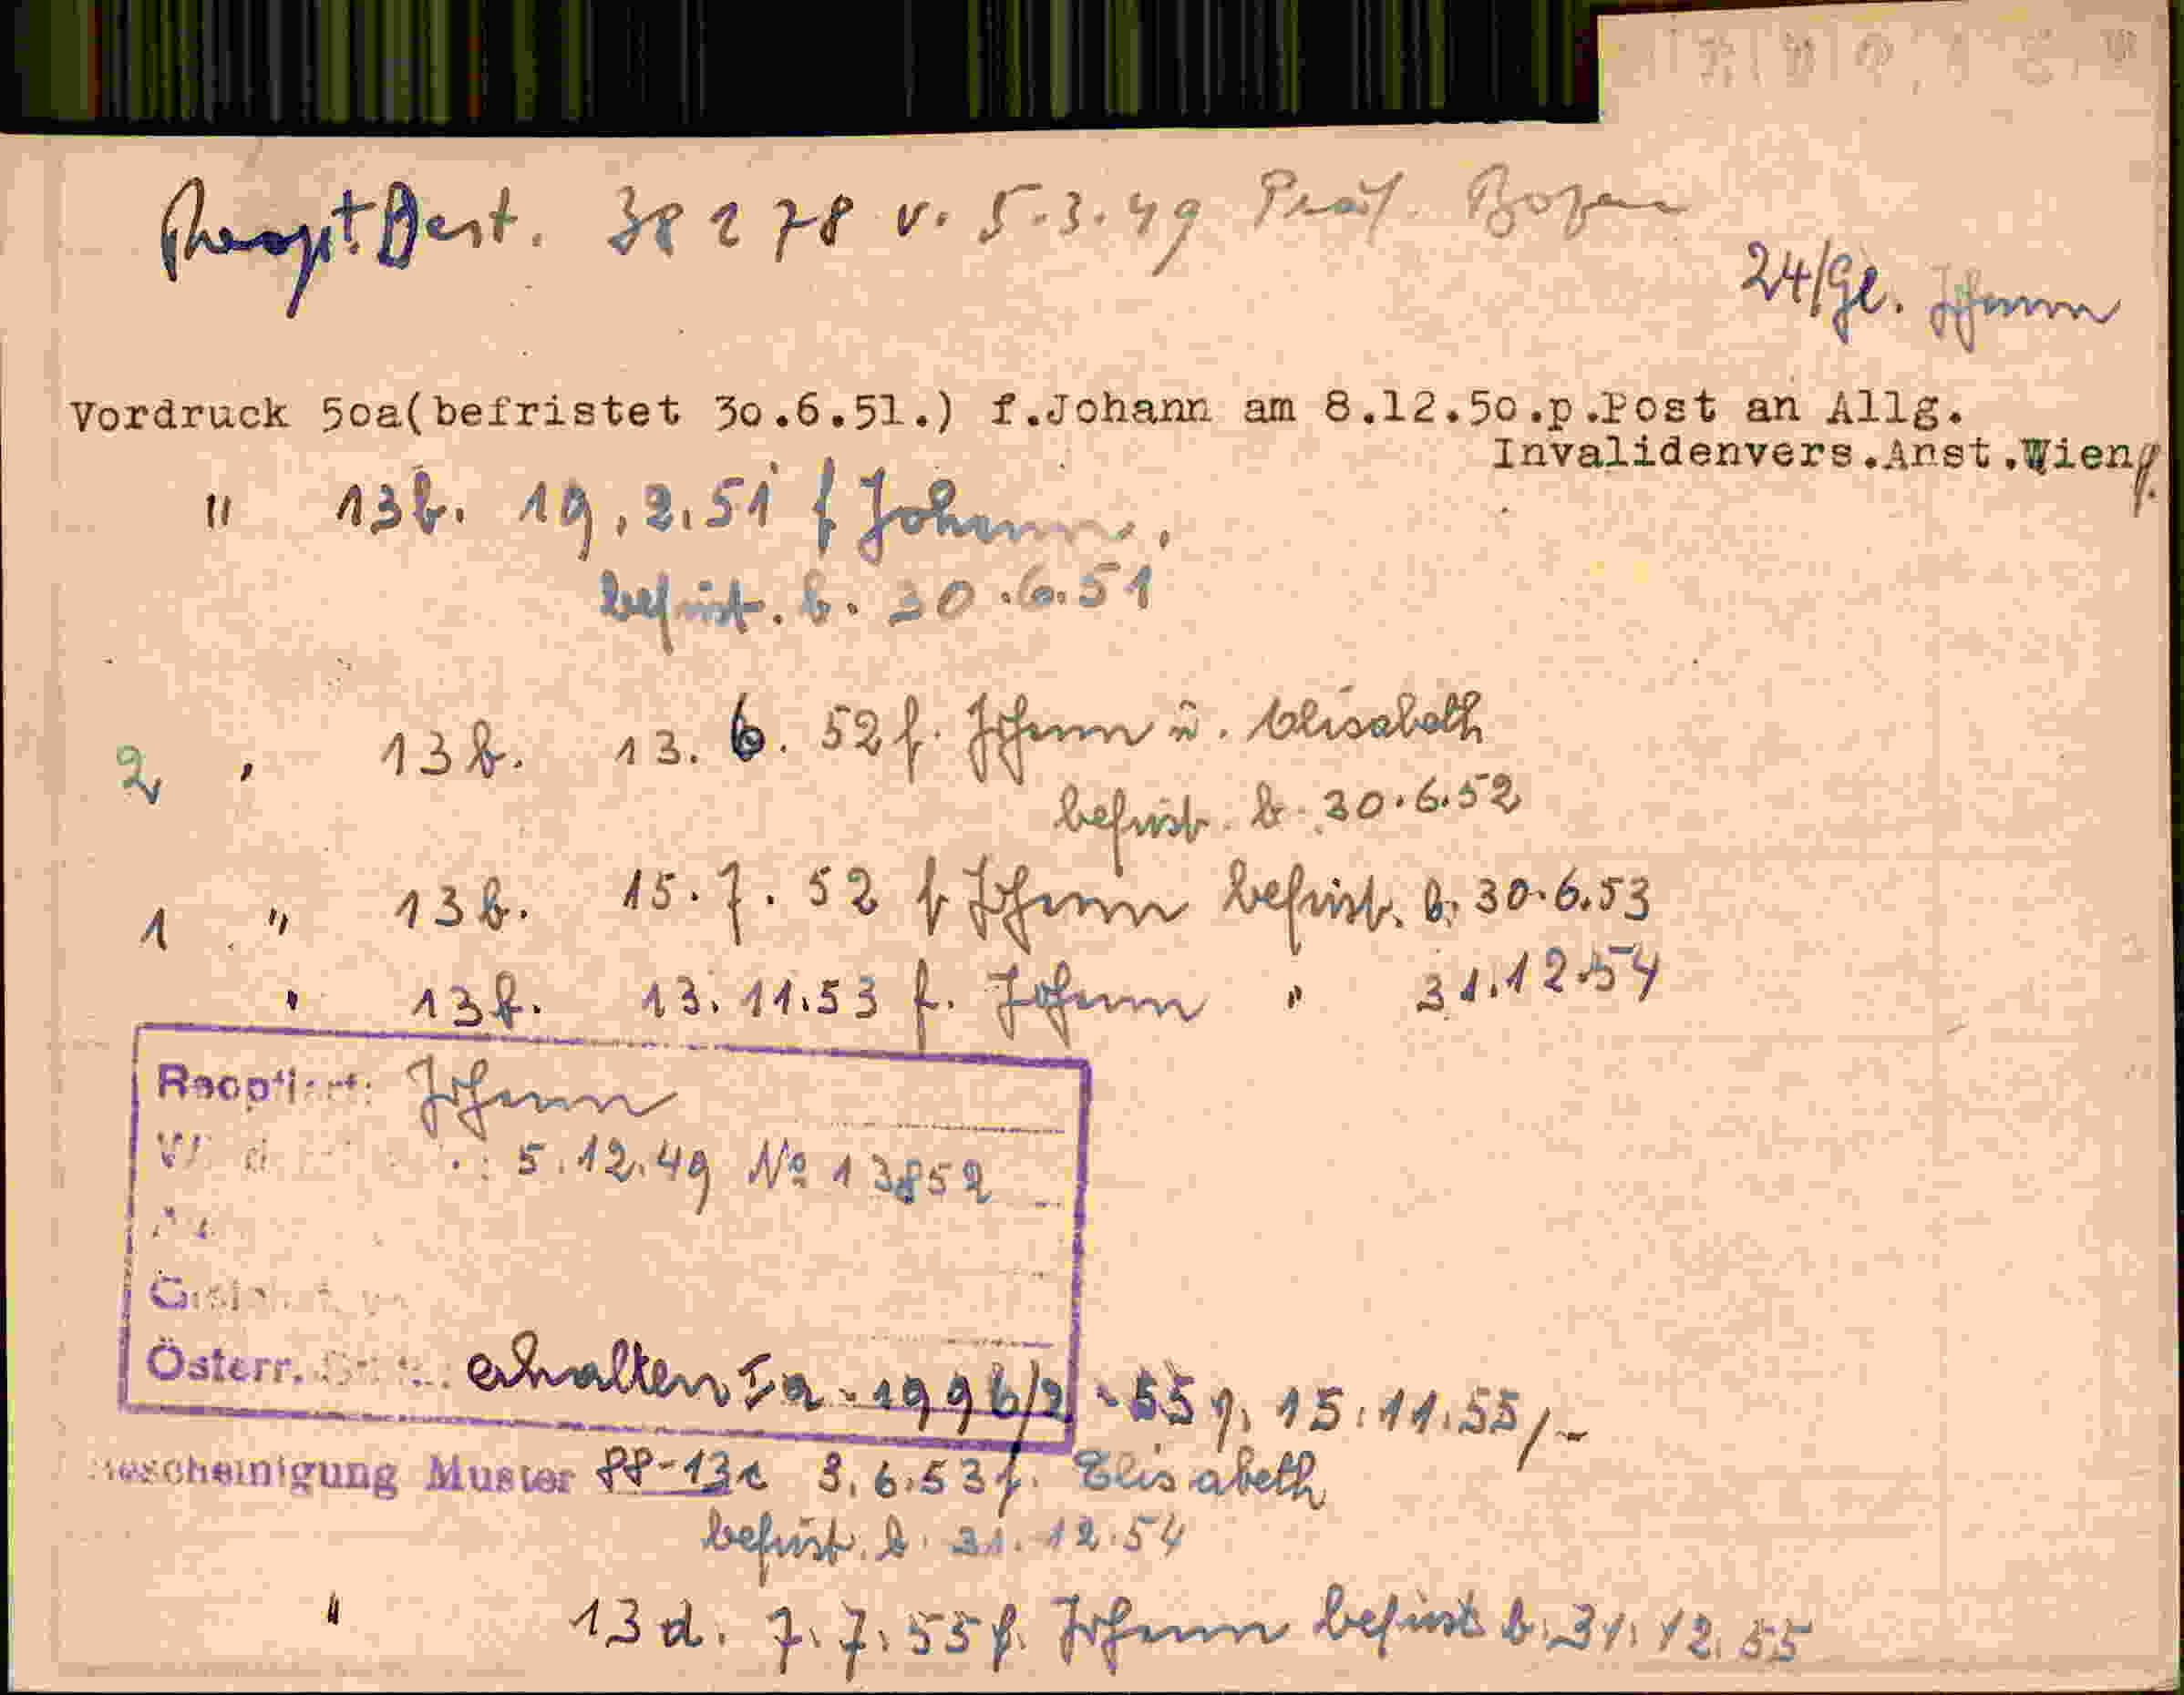 Reopt. Best. 38278 v. 5.3.49 Präf. Bozen
24/Gl. Johann
Vordruck 50a(befristet 30.6.51.) f.Johann am 8.12.50.p.Post an Allg.
Invalidenvers.Anst.Wien
" 13b. 19.2.51 f Johann.
befrist. b. 30.6.51
2 " 13b. 13.6.52 f. Johann u. Elisabeth
befrist. b. 30.6.52
1 " 13b. 15.7.52 f Johann befrist. b. 30.6.53
" 13b. 13.11.53 f. Johann " 31.12.54
Reoptiert: Johann
5.12.49 No 13852
Österr. erhalten Ia-1996/2-55 v. 15.11.55/-
Bescheinigung Muster 88-13c 3.6.53 f. Elisabeth
befrist. b. 31.12.54
" 13d. 7.7.55 f. Johann befrist b. 31.12.55